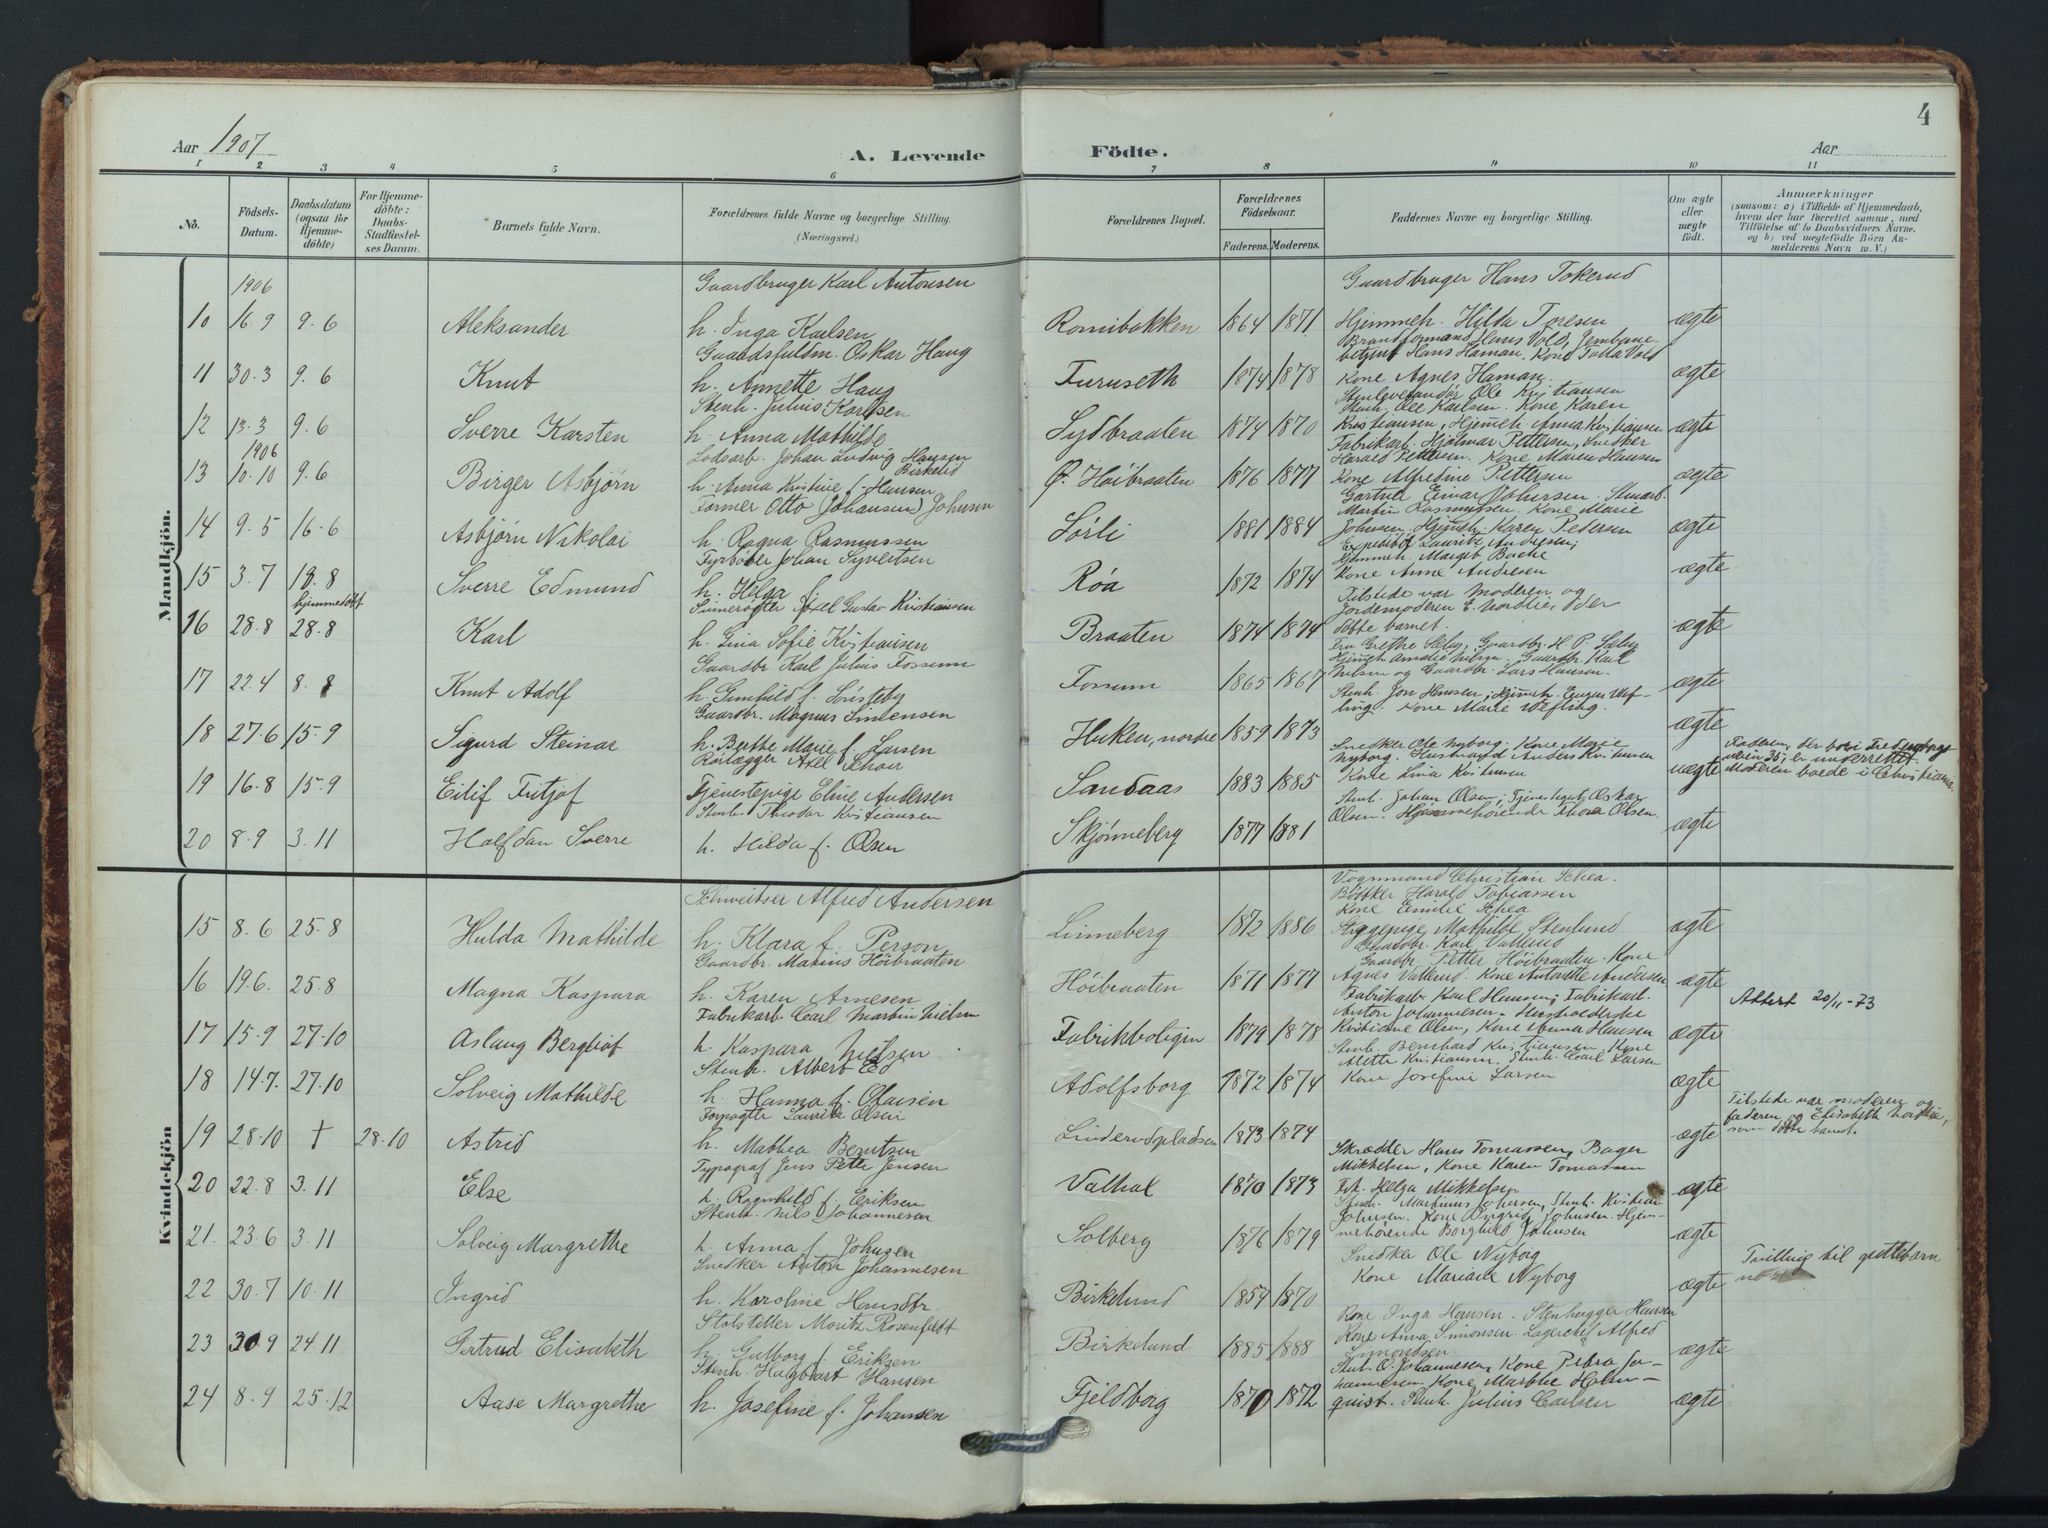 4
Aar 1907
A. Levende Födte.
Aar
1 2 3 4 5 6 7 8 9 10 11
No.
Födsels-Datum.
Daabsdatum (ogsaa for Hjemmedöbte)
For Hjemmedöbte: Daabs-Stadfæstelses Datum.
Barnets fulde Navn.
Forældrenes fulde Navne og borgerlige Stilling. (Næringsvei.)
Forældrenes Bopæl.
Forældrenes Födselsaar.
Faderens. Moderens.
Faddernes Navne og borgerlige Stilling.
Om ægte eller uægte födt.
Anmærkninger
(saasom: a) i Tilfælde af Hjemmedaab, hvem der har forrettet samme, med Tilföielse af to Daabsvidners Navne, og b) ved uægtefödte Börn Anmelderens Navn m. V.)
Mandkjön.
1906 Gaardbruger Karl Antonsen Gaardbruger Hans Tokerud
10 16.9 9.6 Aleksander h. Inga Karlsen Romibakken 1864 1871 Hjemmeh. Hilda Toresen ægte
Gaardsfuldm. Oskar Haug Brandformand Hans Vold, Jernbane-
betjent Hans Haman. Kone Vold
11 30.3 9.6 Knut h. Annette Haug Furuseth 1874 1878 Kone Agnes Haman ægte
Stenh. Julius Karlsen Stenleverandør Ole Kristiansen
Stenh. Ole Karlsen. Kone Karen
12 13.3 9.6 Sverre Karsten h. Anna Mathilde Sydbraaten 1874 1870 Kristiansen, Hjemmeh Anna Kristiansen ægte
1906 Lodsarb. Johan Ludvig Hansen Birkelid Fabrikarb. Hjalmar Pettersen, Snedker
Harald Pettersen. Kone Maren Hansen
13 10.10 9.6 Birger Asbjørn h. Anna Kristine f. Hansen Ø. Høibraaten 1876 1877 Kone Alfredine Pettersen ægte
Former Otto (Johansen) Johnsen Gartner Einar Johnsen. Stenarb.
Martin Rasmussen. Kone Marie
14 9.5 16.6 Asbjørn Nikolai h. Ragna Rasmussen Sørli 1881 1884 Johnsen. Hjemmeh. Karen Petersen ægte
Fyrbøder Johan Syvertsen Lauritz Andresen;
Hjemmeh. Margit Bache
15 3.7 18.8 Sverre Edmund h. Helga f. Røa 1872 1874 Kone Anne Andresen ægte
hjemmedøbt Axel Gustav Kristiansen Tilstede var moderen og
Jordemoderen E. Nordlie, der
16 28.8 28.8 Karl h. Gina Sofie Kristiansen Braaten 1874 1874 døbte barnet. ægte
Gaardbr. Karl Julius Fossum Fru Grethe Sæby, Gaardbr. H. P. Sæby
Hjemmeh Amalie Nilsen. Gaardbr. Karl
17 22.4 8.8 Knut Adolf h. Gunhild f. Fossum 1865 1867 Nilsen og Gaardbr. Lars Hansen. ægte
Gaardbr. Magnus Stenh. Jon Hansen; Hjemmeh. Eugen Wef-
ling. Kone Marie Wefling.
18 27.6 15-9 Sigurd Steinar h. Berthe Marie f. Larsen Huken, nordre 1859 1873 ægte
Rørlægger Axel Snedker Ole Nyborg. Kone Marie Faderen, der bor i
Nyborg. Husmand Anders Kristiansen 35, er underrettet.
19 16.8 15-9 Eilif Fritjof Tjenestepige Eline Andersen Sandaas 1883 1885 Kone Lina Kristiansen uægte Moderen boede i Christiania.
Stenh. Theodor Kristiansen Stenh. Johan Olsen; Oskar
Olsen. Hjemmehørende Thora Olsen.
20 8.9 3.11 Halfdan Sverre h. Hilda f. Olsen Skjønneberg 1877 1881 ægte
Kvindekjön
Schweitser Alfred Andersen Vognmand Christian Schea.
Bødker Harald Tobiassen
Kone Emilie Schea
15 8.6 25.8 Hulda Mathilde h. Klara f. Person Linneberg 1872 1886 Mathilde Stenlund ægte
Gaardbr. Marius Høibraaten Gaardbr. Karl Vallerud
Gaardbr. Petter Høibraaten. Kone
16 19.6. 25.8 Magna Kaspara h. Karen Arnesen Høibraaten 1871 1877 Agnes Vallerud. Kone Antonette Andersen ægte
Fabrikarb Carl Martin Nielsen Fabrikarb Karl Hansen; Fabrikarb. Attest 20/11-73
Anton Johannesen. Husholderske
17 15.9 27.10 Aslaug Bergliot h. Kaspara Nielsen Fabrikboligen 1879 1878 Kristiane Olsen, Kone Anna Hansen ægte
Stenh. Albert Ed Stenh. Bernhard Kristiansen. Kone
Alette Kristiansen. Stenh. Carl Larsen
18 14.7. 27.10 Solveig Mathilde h. Hanna f. Olausen Adolfsborg 1872 1874 Kone Josefine Larsen ægte
Forpagter Laurits Olsen Tilstede var moderen og
faderen og Elisabeth Nordlie,
19 28.10 † 28.10 Astrid h. Mathea Berntsen Linderudpladsen 1873 1874 ægte som døbte barnet.
Typograf Jens Peter Jensen Skrædder Hans Tomassen, Bager
Mikkelsen, Kone Karen Tomassen
20 22.8 3.11 Else h. Ragnhild f. Eriksen Valhal 1870 1873 Frk. Helga Mikkelsen ægte
Stenh. Nils Johannesen Stenh. Martinius Johnsen, Stenh. Kristian
Johnsen. Kone Ingrid Johnsen. Hjem-
21. 23.6 3.11 Solveig Margrethe h. Anna f. Johnsen Solberg 1876 1879 mehørende Borghild Johnsen ægte
Snedker Anton Johannesen Snedker Ole Nyborg Tvilling til guttebarn
22 30.7 10.11 Ingrid h. Karoline Hansdtr. Birkelund 1854 1870 Kone Mariane Nyborg ægte
Moritz Rosenfeldt Kone Inga Hansen. Stenhugger Hansen
Kone Anna Simonsen. Lagerchef Alfred
23 30.9 24.11 Gertrud Elisabeth h. Gulborg f. Eriksen Birkelund 1885 1888 Simonsen. ægte
Stenh. Hagbart Hansen Stenh. O. Johannesen, Kone Petra Jo-
hannesen. Kone Marthe Holm-
24 8.9 25.12 Aase Margrethe h. Josefine f. Johansen Fjeldborg 1870 1872 quist. Stenh. Julius Carlsen ægte